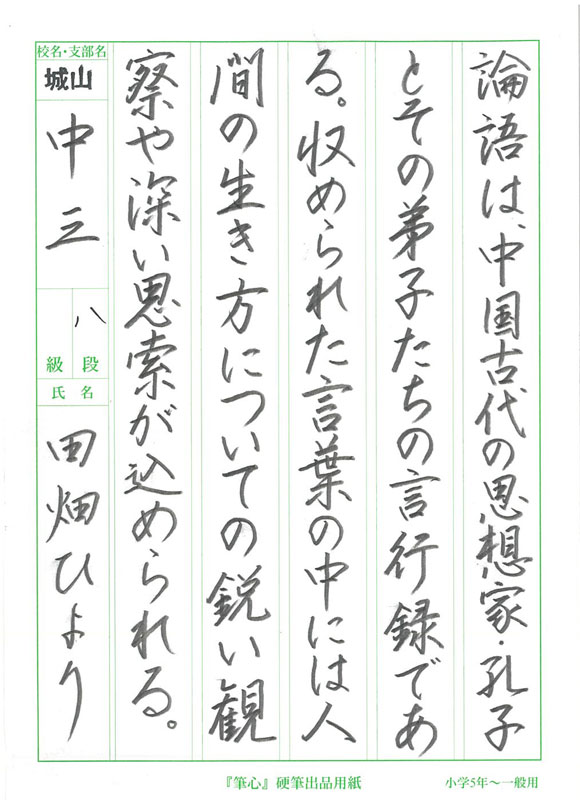 論語は、中国古代の思想家・孔子
とその弟子たちの言行録であ
る。収められた言葉の中には人
間の生き方についての鋭い観
察や深い思索が込められる。
校名・支部名
城山
中三
八
段
級
氏名
田畑ひより
『筆心』硬筆出品用紙
小学5年〜一般用